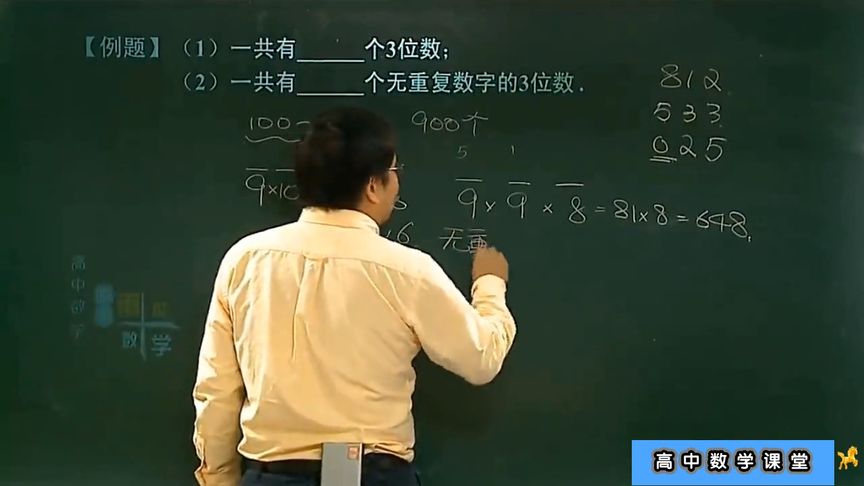 【例题】（1）一共有______个3位数；
（2）一共有______个无重复数字的3位数.
812
533
025
100
900个
5 1
9×10
9 × 9 × 8 = 81×8 = 648.
6 无重
高中数学
数学
高中数学课堂